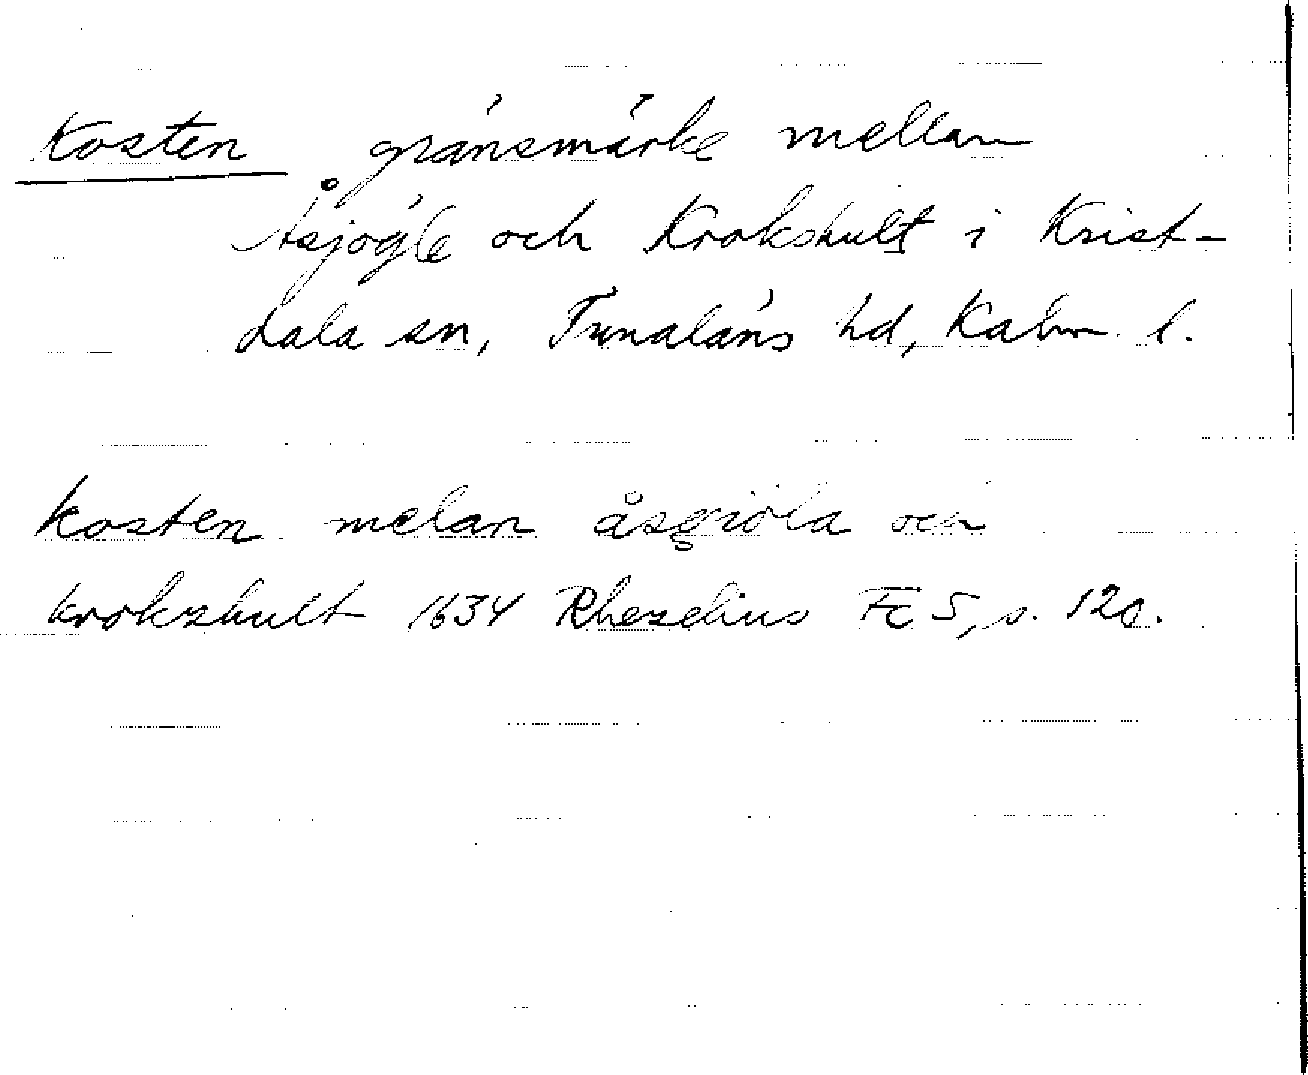 Kosten gränsmärke mellan
Åsjögle och Krokshult i Krist-
dala sn, Tunaläns hd, Kalm. l.
kosten melan åsgiöla och
krokzhult 1634 Rhezelius Fc 5, s. 120.